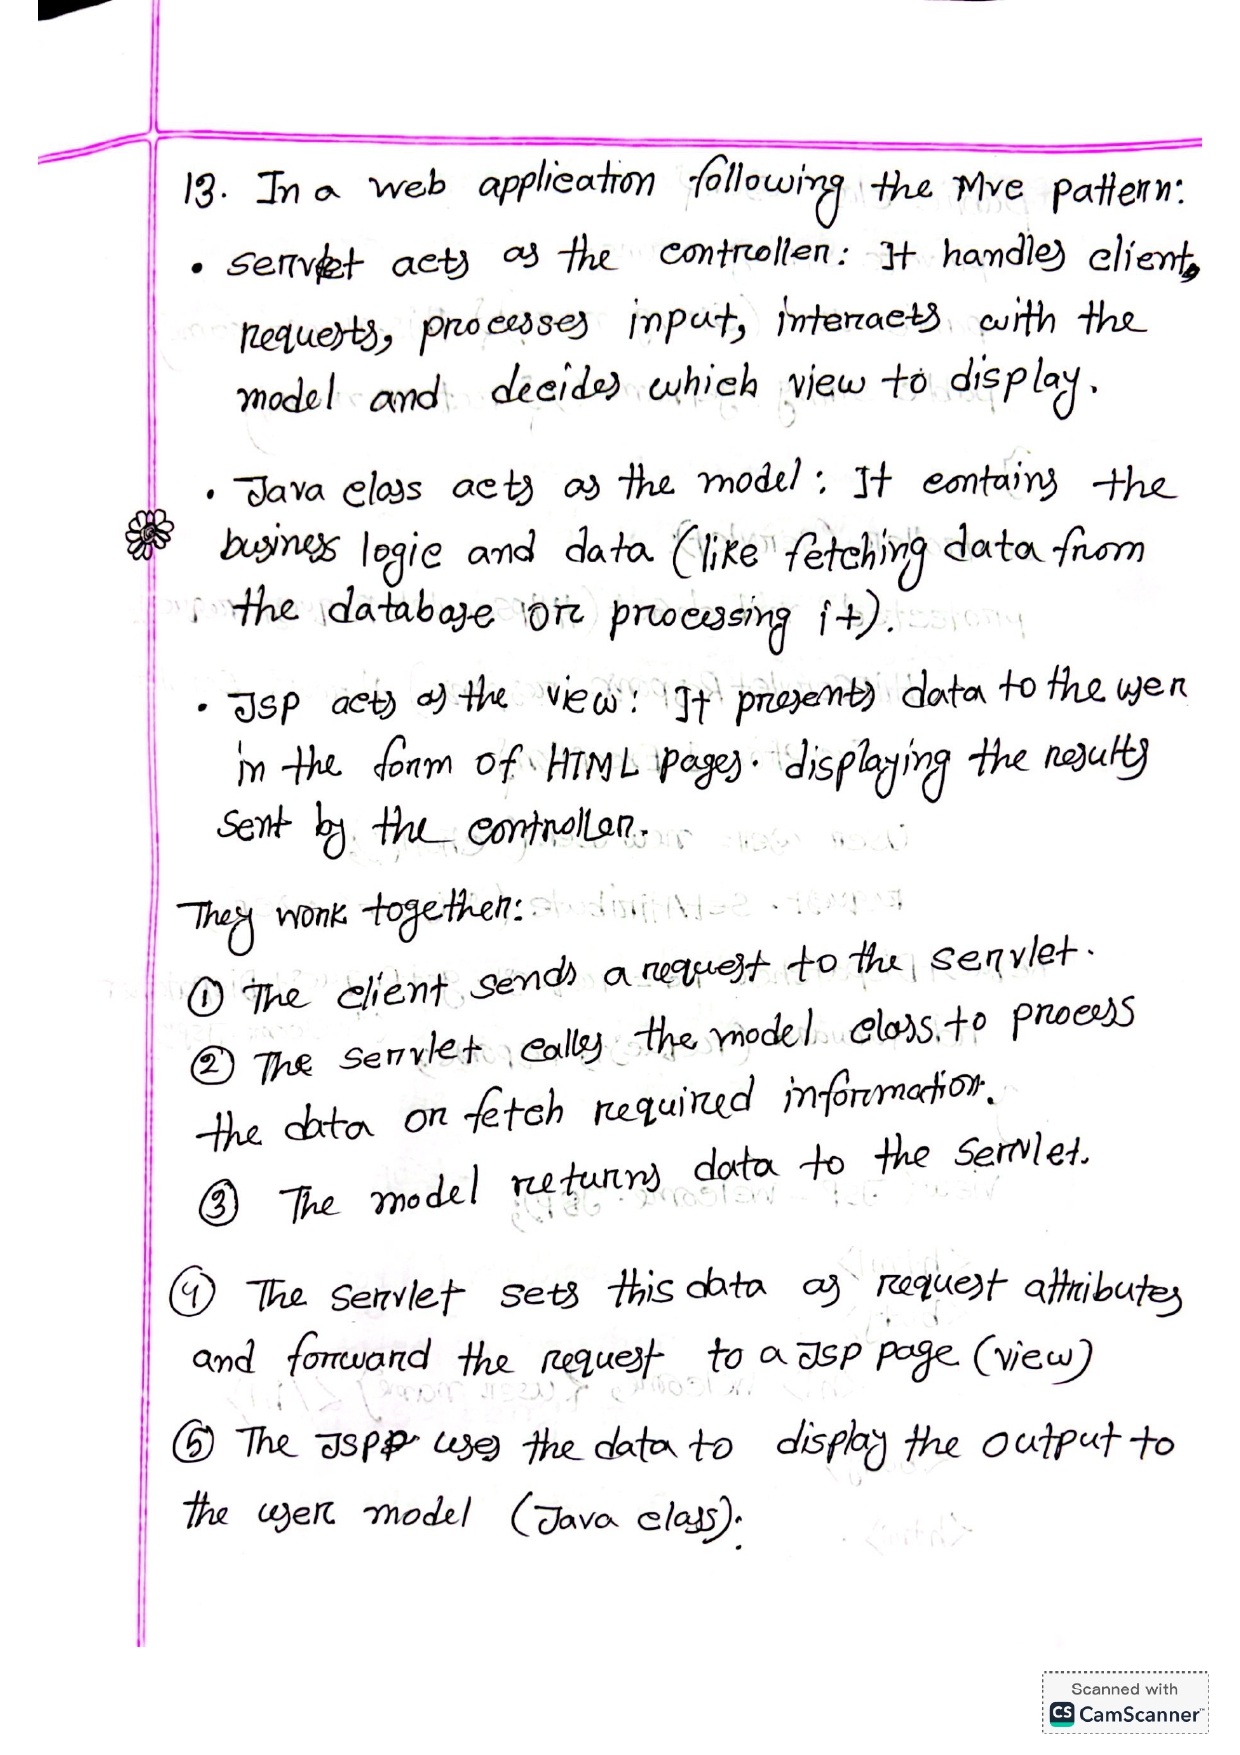 13. In a web application following the Mvc pattern:
• Servlet acts as the controller: It handles client,
requests, processes input, interacts with the
model and decides which view to display.
• Java class acts as the model: It contains the
business logic and data (like fetching data from
the database or processing it).
• JSP acts as the view: It presents data to the user
in the form of HTML pages. displaying the results
sent by the controller.
They work together:
① The client sends a request to the servlet.
② The servlet calls the model class to process
the data or fetch required information.
③ The model returns data to the servlet.
④ The servlet sets this data as request attributes
and forward the request to a JSP page (view)
⑤ The JSP uses the data to display the output to
the user model (Java class).
Scanned with
CS CamScanner